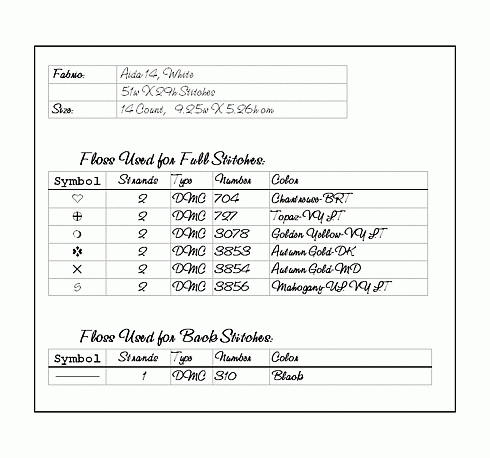 Fabric: Aida 14, White
51w X 29h Stitches
Size: 14 Count, 9.25w X 5.26h cm
Floss Used for Full Stitches:
Symbol Strands Type Number Color
2 DMC 704 Chartreuse-BRT
2 DMC 727 Topaz-VY LT
2 DMC 3078 Golden Yellow-VY LT
2 DMC 3853 Autumn Gold-DK
2 DMC 3854 Autumn Gold-MD
2 DMC 3856 Mahogany-UL VY LT
Floss Used for Back Stitches:
Symbol Strands Type Number Color
1 DMC 310 Black